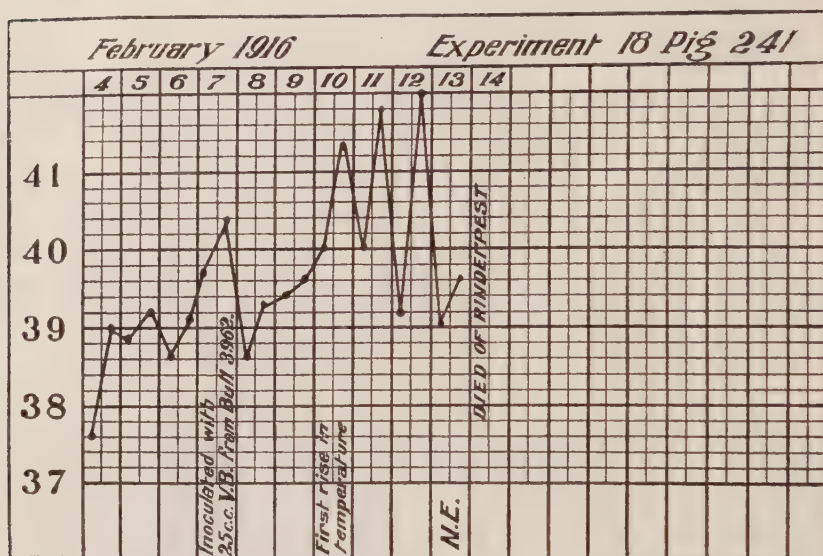 February 1916
Experiment 18 Pig 241
4 5 6 7 8 9 10 11 12 13 14
41
40
39
38
37
Inoculated with
25c.c. V.B. from Bull 3962.
First rise in
temperature
N.E.
DIED OF RINDERPEST